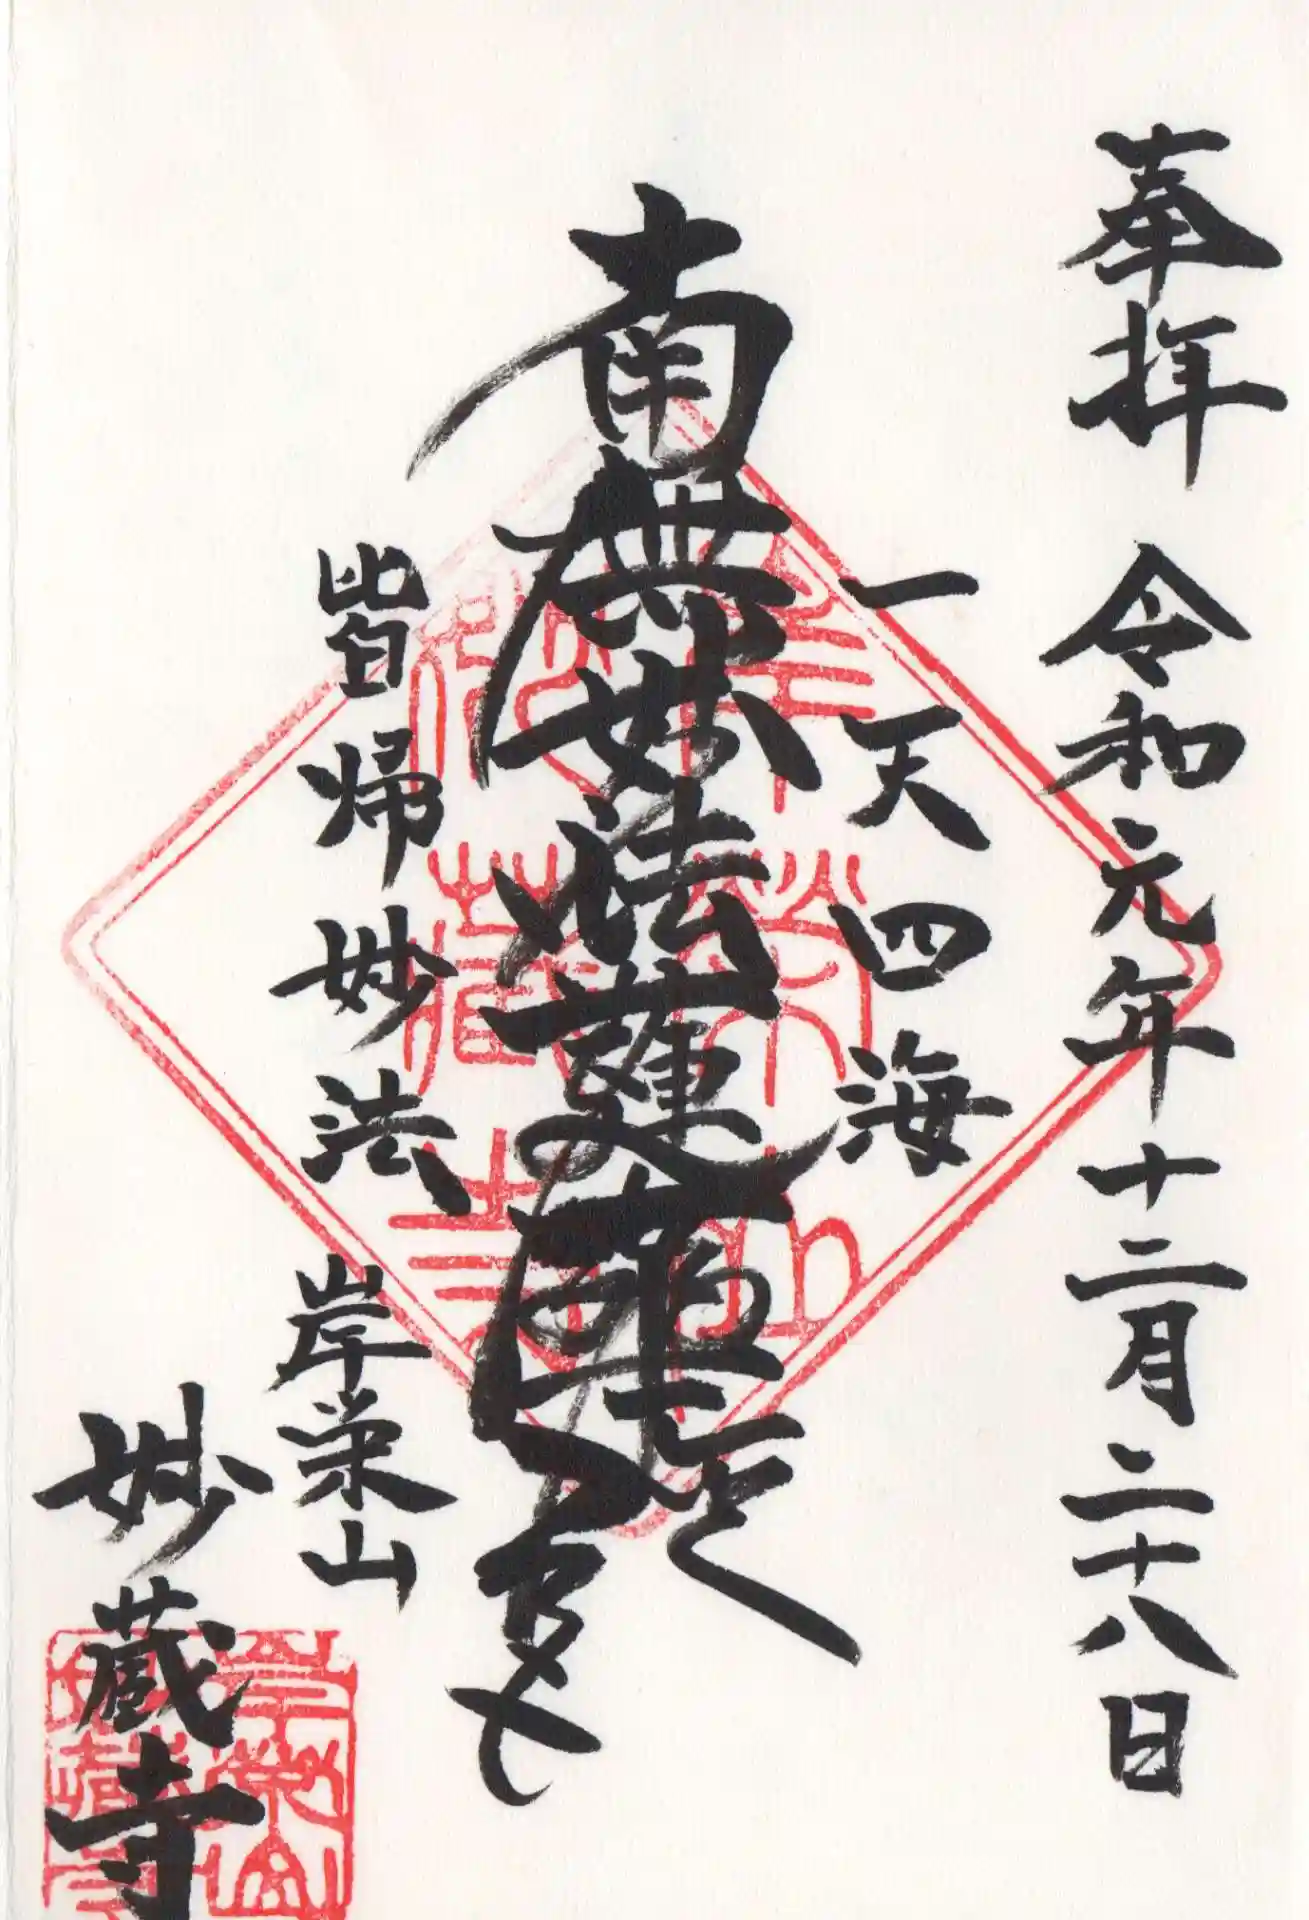 奉拝 令和元年十二月二十八日
一天四海
南無妙法蓮華経
皆帰妙法
岸栄山
妙蔵寺
岸栄山
妙蔵寺